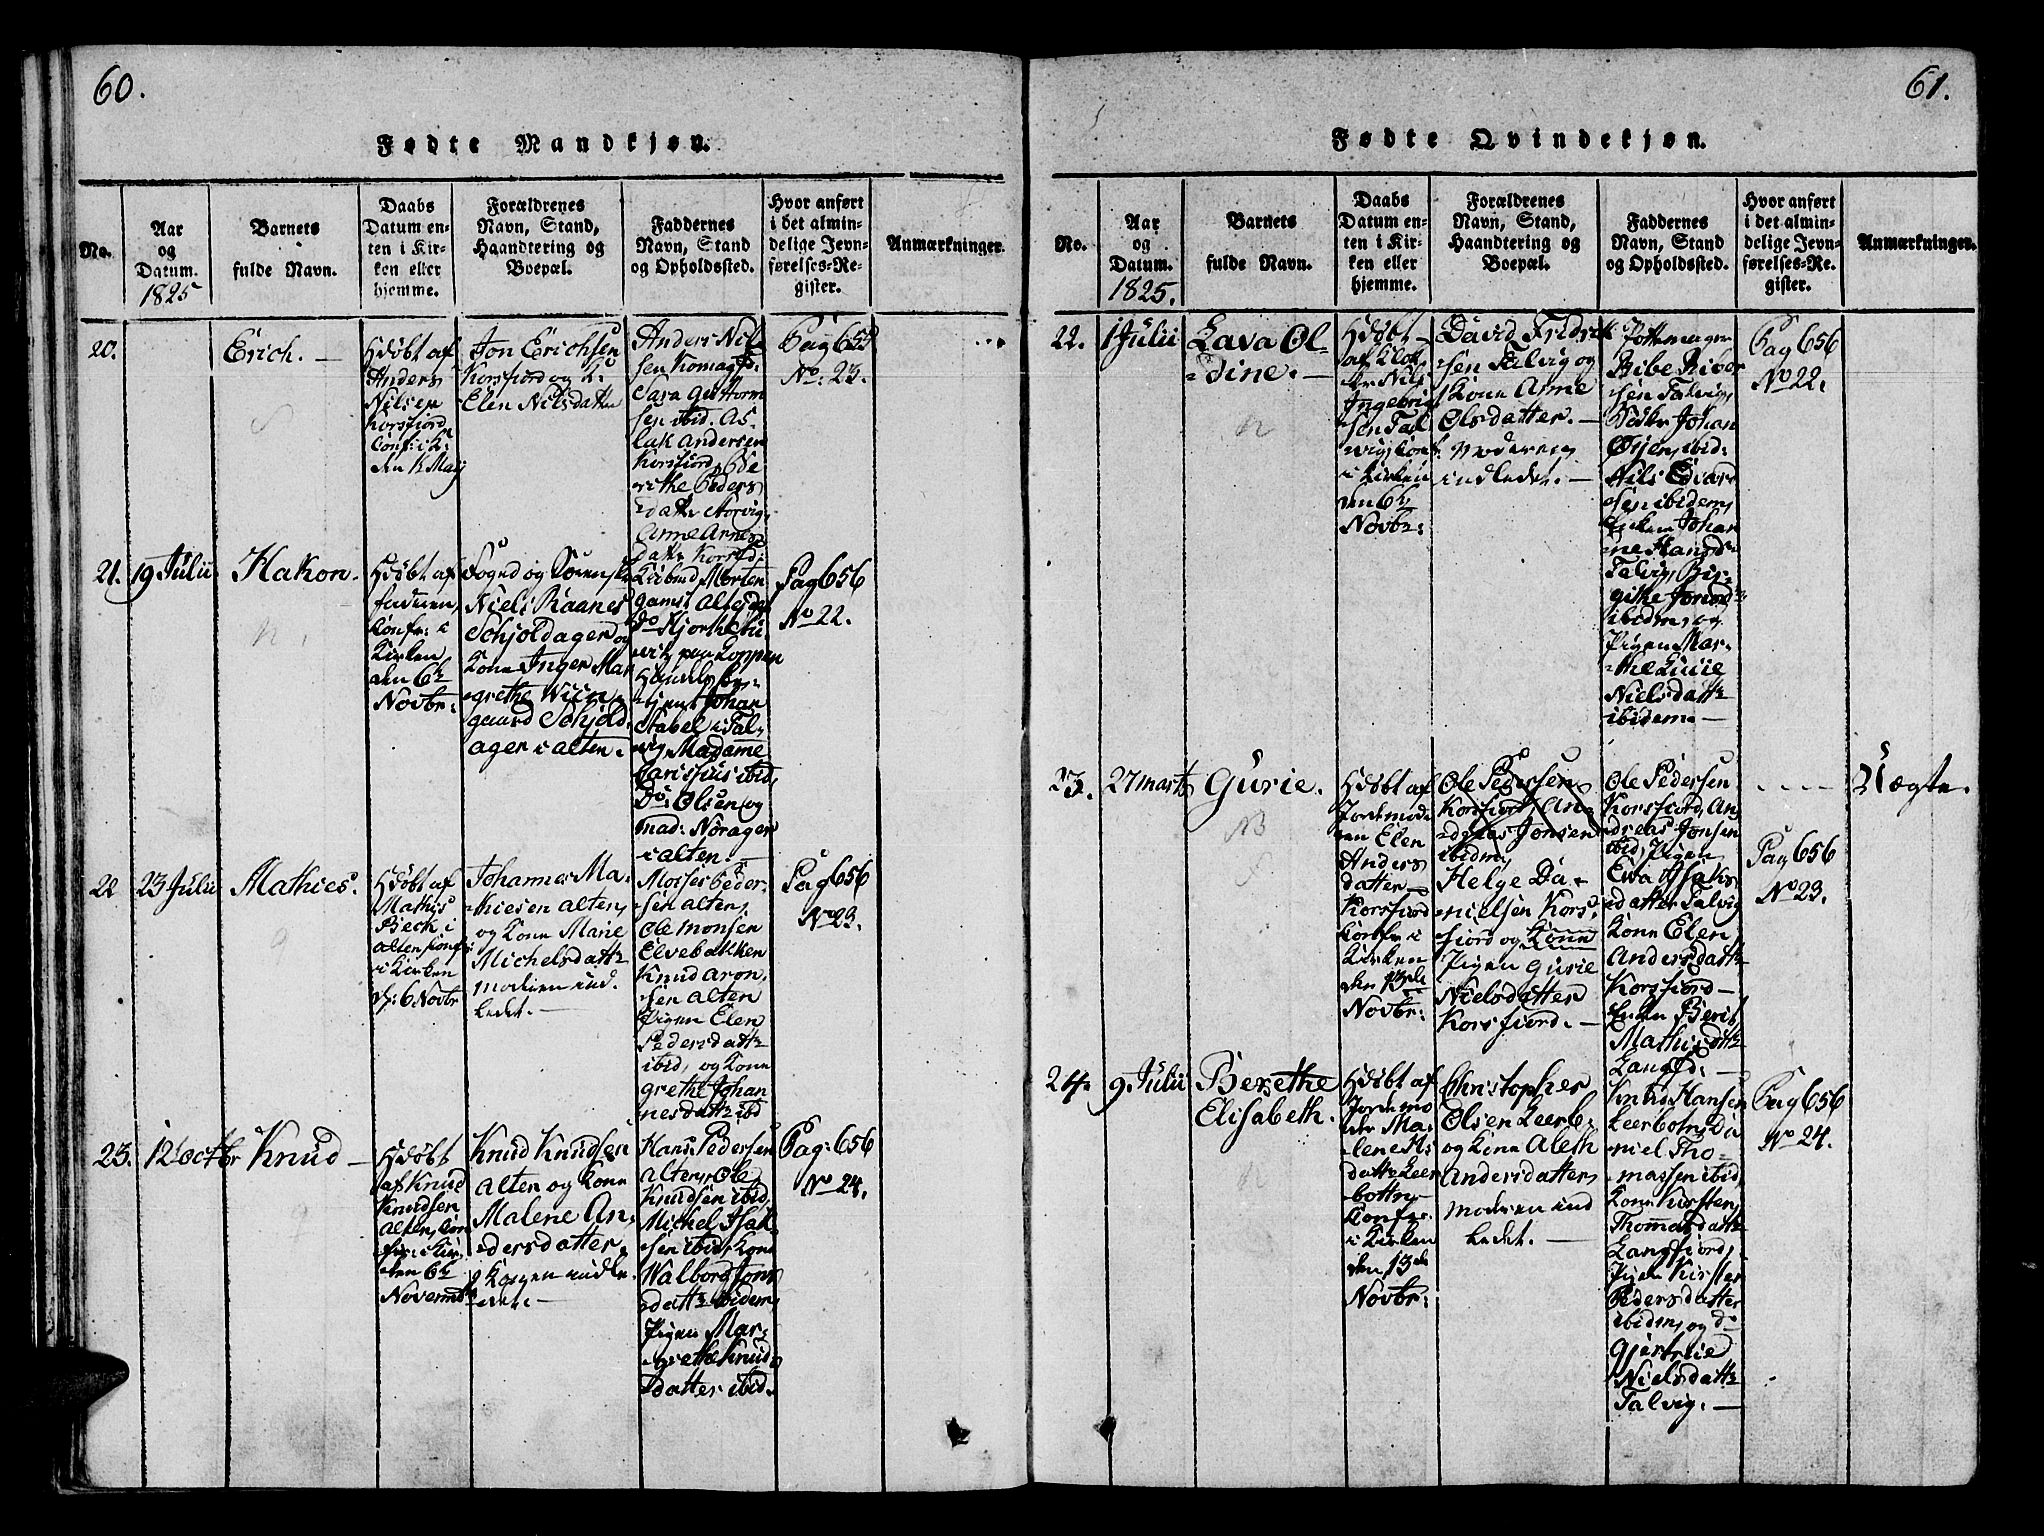 60.
Fødte Mandkjøn.
No.
Aar
og
Datum.
1825
Barnets
fulde Navn.
Daabs
Datum en-
ten i Kir-
ken eller
hjemme.
Forældrenes
Navn, Stand,
Haandtering og
Boepæl.
Faddernes
Navn, Stand
og Opholdssted.
Hvor anført
i det almin-
delige Jevn-
førelses-Re-
gister.
Anmærkninger.
20.
Erich. —
Hdøbt af
Anders
Nilsen
Korsfiord
Conf: i K:
den 1 Maij
Jon Erichsen
Korsfiord og K:
Elen Nilsdatter
Anders Nil
sen Komagfd:
Sara Guttorm
sen ibid. As-
lak Andersen
Korsfiord,
rithe Peders
datter Storvig,
Anne Arnes
datter Korsfd:
Pag 655
No: 23.
21.
19 Julii
Hakon.
Hdøbt af
Faderen,
Confr: i
Kirken
den 6te
Novbr:
Sogned og Sorensk:
Niels Raanes
Schjoldager og
Kone Inger Mar
grethe Wiin-
gaard Schjold
ager i alten.
Morten
Altesde
Do Hjorth
paa Loppen
Handels be-
tjent Johan
Stabel i Tal-
vig, Madamme
Carissius ibid,
Do: Olsen og
mad: Norager
i alten. —
Pag 656
No 22.
22
23 Julii
Mathies.
Hdøbt af
Mathis
Beck i
alten Conf:
i Kirken
d: 6 Novbr
Johannes Ma-
thiesen alten,
og Kone Marie
Michelsdattr
moderen ind
ledet. —
Moses Peder-
sen alten,
Ole Monsen
Elvebakken
Knud Aron-
sen alten
Pigen Elen
Pedersdattr
ibid, og Kone
Grethe Johan
nesdattr ibd
Pag 656
No 23.
23.
12 octbr
Knud —
Hdøbt
af Knud
Knudsen
alten, Con
fir: i Kir:
den 6te
Novembr
Knud Knudsen
alten og Kone
Malene An-
dersdatter,
Konen indle-
det. —
Hans Pedersen
alten, Ole
Knudsen ibid,
Michel Isak
sen ibid, Kone
Walborg Jons
dattr ibidem,
Pigen Mar-
grethe Knuds
datter ibid.
Pag: 656
No 24.
61.
Fødte Qvindekjøn.
No.
Aar
og
Datum.
1825.
Barnets
fulde Navn.
Daabs
Datum en-
ten i Kir-
ken eller
hjemme.
Forældrenes
Navn, Stand,
Haandtering og
Boepæl.
Faddernes
Navn, Stand
og Opholdssted.
Hvor anført
i det almin-
delige Jevn-
førelses-Re-
gister.
Anmærkninger.
22.
1 Julii
Lava Ol-
dine. —
Hdøbt
af Klok
ker Nils
Ingebrigt
sen Tal
vig, Conf:
i Kirken
den 6te
Novbr:
David Fredrik
sen Talvig og
Kone Anne
Olsdatter. —
Moderen
indledet. —
Ribe Riber
sen Talvig,
Pedr Johan
Ibid:
Nils Edvard
sen ibidem,
Enken Johan
ne Hansd:
Talvig, Bir-
githe Jonsd:
ibidem, og
Pigen Mar-
the Lucie
Nielsdattr
ibidem. —
Pag 656
No 22.
23.
27 marts
Gurie.
Hdøbt af
Jordmode
ren Elen
Anders
datter —
Korsfiord
Confr: i
Kirken
den 13de
Novbr:
Ole Pedersen
Korsfiord An-
dreas Jonsen
ibidm,
Helge Da-
nielsen Kors-
fiord og Kone
Pigen Gurie
Nielsdatter
Korsfiord. —
Ole Pedersen
Korsfiord, An
dreas Jonsen
ibid, Pigen
Ewa Isaks
datter Talvig
Kone Elen
Andersdattr
Korsfiord —
Enken Berit
Mathisdttr
Langfd: —
- - - -
Pag 656
No 23.
Uægte.
24.
9. Julii
Berethe
Elisabeth.
Hdøbt af
Jordmo
der Ma-
lene H:
dattr Leer
bottn —
Confr:
i Kirken
den 13de
Novbr:
Christopher
Olsen Leerb:
og Kone Aleth
Andersdatter,
Moderen ind
ledet. —
Knud Hansen
Leerbotn, Da
niel Tho-
massen ibid,
Kone Kirsten
Thomasdattr
Langfiord,
Pigen Kirsten
Pedersdatter
ibidm, og do
Gjertrue
Nielsdattr
Talvig. —
Pag 656
No 24.